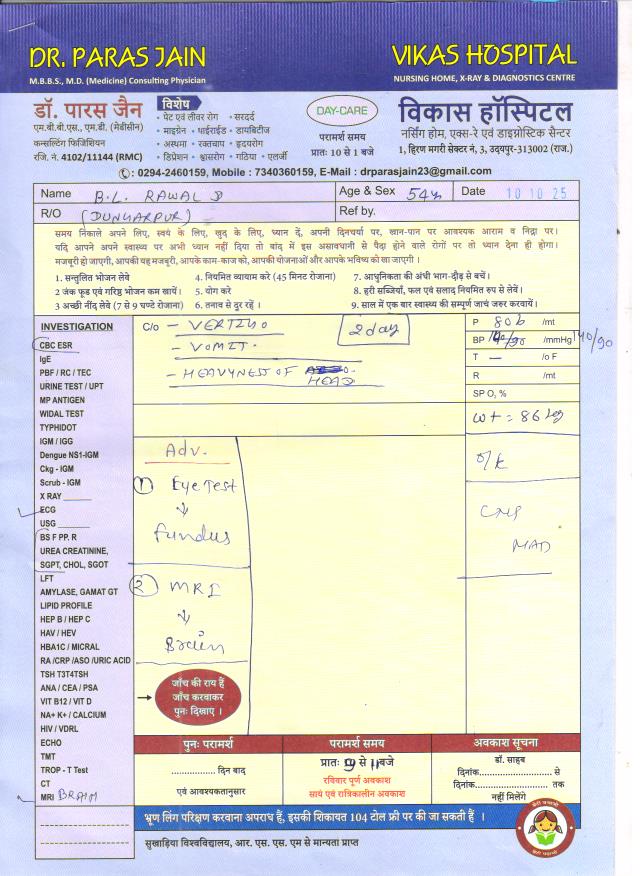 DR. PARAS JAIN
M.B.B.S., M.D. (Medicine) Consulting Physician
VIKAS HOSPITAL
NURSING HOME, X-RAY & DIAGNOSTICS CENTRE
डॉ. पारस जैन
एम.बी.बी.एस., एम.डी. (मेडीसीन)
कन्सल्टिंग फिजिशियन
रजि. नं. 4102/11144 (RMC)
विशेष
• पेट एवं लीवर रोग • सरदर्द
• माइग्रेन • थाईराईड • डायबिटीज
• अस्थमा • रक्तचाप • हृदयरोग
• डिप्रेशन • श्वासरोग • गठिया • एलर्जी
DAY-CARE
परामर्श समय
प्रातः 10 से 1 बजे
विकास हॉस्पिटल
नर्सिंग होम, एक्स-रे एवं डाइग्नोस्टिक सेन्टर
1, हिरण मगरी सेक्टर नं. 3, उदयपुर-313002 (राज.)
: 0294-2460159, Mobile : 7340360159, E-Mail : drparasjain23@gmail.com
Name B.L. RAWAL
Age & Sex 54y
Date 10 10 25
R/O (DUNGARPUR)
Ref by.
समय निकाले अपने लिए, स्वयं के लिए, खुद के लिए, ध्यान दें, अपनी दिनचर्या पर, खान-पान पर आवश्यक आराम व निद्रा पर।
यदि आपने अपने स्वास्थ्य पर अभी ध्यान नहीं दिया तो बांद में इस असावधानी से पैदा होने वाले रोगों पर तो ध्यान देना ही होगा।
मजबूरी हो जाएगी, आपकी यह मजबूरी, आपके काम-काज को, आपकी योजनाओं और आपके भविष्य को खा जाएगी।
1. सन्तुलित भोजन लेवे
2 जंक फूड एवं गरिष्ठ भोजन कम खायें।
3 अच्छी नींद लेवे (7 से 9 घण्टे रोजाना)
4. नियमित व्यायाम करे (45 मिनट रोजाना)
5. योग करे
6. तनाव से दूर रहें ।
7. आधुनिकता की अंधी भाग-दौड़ से बचें।
8. हरी सब्जियाँ, फल एवं सलाद नियमित रुप से लेवें।
9. साल में एक बार स्वास्थ्य की सम्पूर्ण जाचं जरुर करवायें।
INVESTIGATION
CBC ESR
IgE
PBF / RC / TEC
URINE TEST / UPT
MP ANTIGEN
WIDAL TEST
TYPHIDOT
IGM / IGG
Dengue NS1-IGM
Ckg - IGM
Scrub - IGM
X RAY
ECG
USG
BS F PP. R
UREA CREATININE,
SGPT, CHOL, SGOT
LFT
AMYLASE, GAMAT GT
LIPID PROFILE
HEP B / HEP C
HAV / HEV
HBA1C / MICRAL
RA /CRP /ASO /URIC ACID
TSH T3T4TSH
ANA / CEA / PSA
VIT B12 / VIT D
NA+ K+ / CALCIUM
HIV / VDRL
ECHO
TMT
TROP - T Test
CT
MRI BRAIN
C/o - VERTIGO
- VOMIT.
2 day
- HEAVYNEST OF
HEAD
P 80 b /mt
BP 140/90 /mmHg 140/90
T — /o F
R /mt
SP O, %
wt = 86 kg
O/E
CNS
NAD
Adv.
① Eye Test
↓
fundus
② MRI
↓
Brain
जाँच की राय हैं
जाँच करवाकर
पुनः दिखाए ।
पुनः परामर्श
.................. दिन बाद
एवं आवश्यकतानुसार
परामर्श समय
प्रातः 9 से 11 बजे
रविवार पूर्ण अवकाश
सायं एवं रात्रिकालीन अवकाश
अवकाश सूचना
डॉ. साहब
दिनांक.................. से
दिनांक.................. तक
नहीं मिलेंगे
भ्रूण लिंग परिक्षण करवाना अपराध हैं, इसकी शिकायत 104 टोल फ्री पर की जा सकती हैं ।
सुखाड़िया विश्वविद्यालय, आर. एस. एस. एम से मान्यता प्राप्त